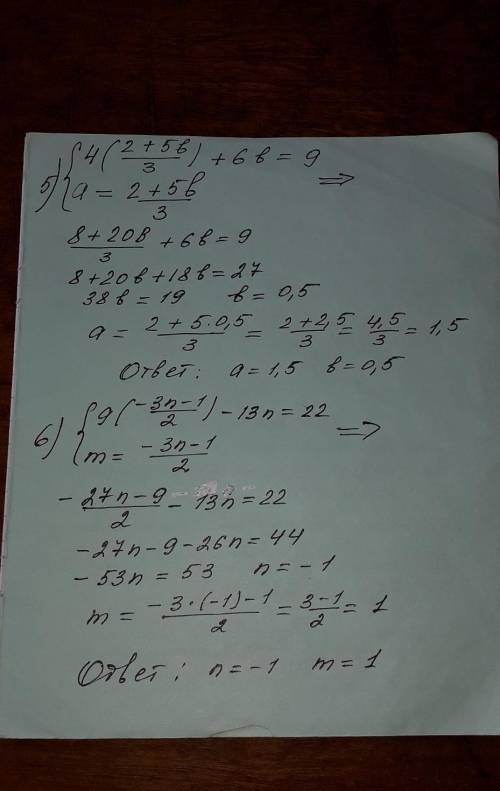 5) { 4(2+5в/3) + 6в = 9
a = 2+5в/3 ⇒
8+20в/3 + 6в = 9
8+20в+18в=27
38в = 19 в = 0,5
a = 2+5·0,5/3 = 2+2,5/3 = 4,5/3 = 1,5
Ответ: a=1,5 в=0,5
6) { 9(-3n-1/2) - 13n = 22
m = -3n-1/2 ⇒
-27n-9/2 - 13n = 22
-27n-9-26n=44
-53n = 53 n = -1
m = -3·(-1)-1/2 = 3-1/2 = 1
Ответ: n=-1 m=1